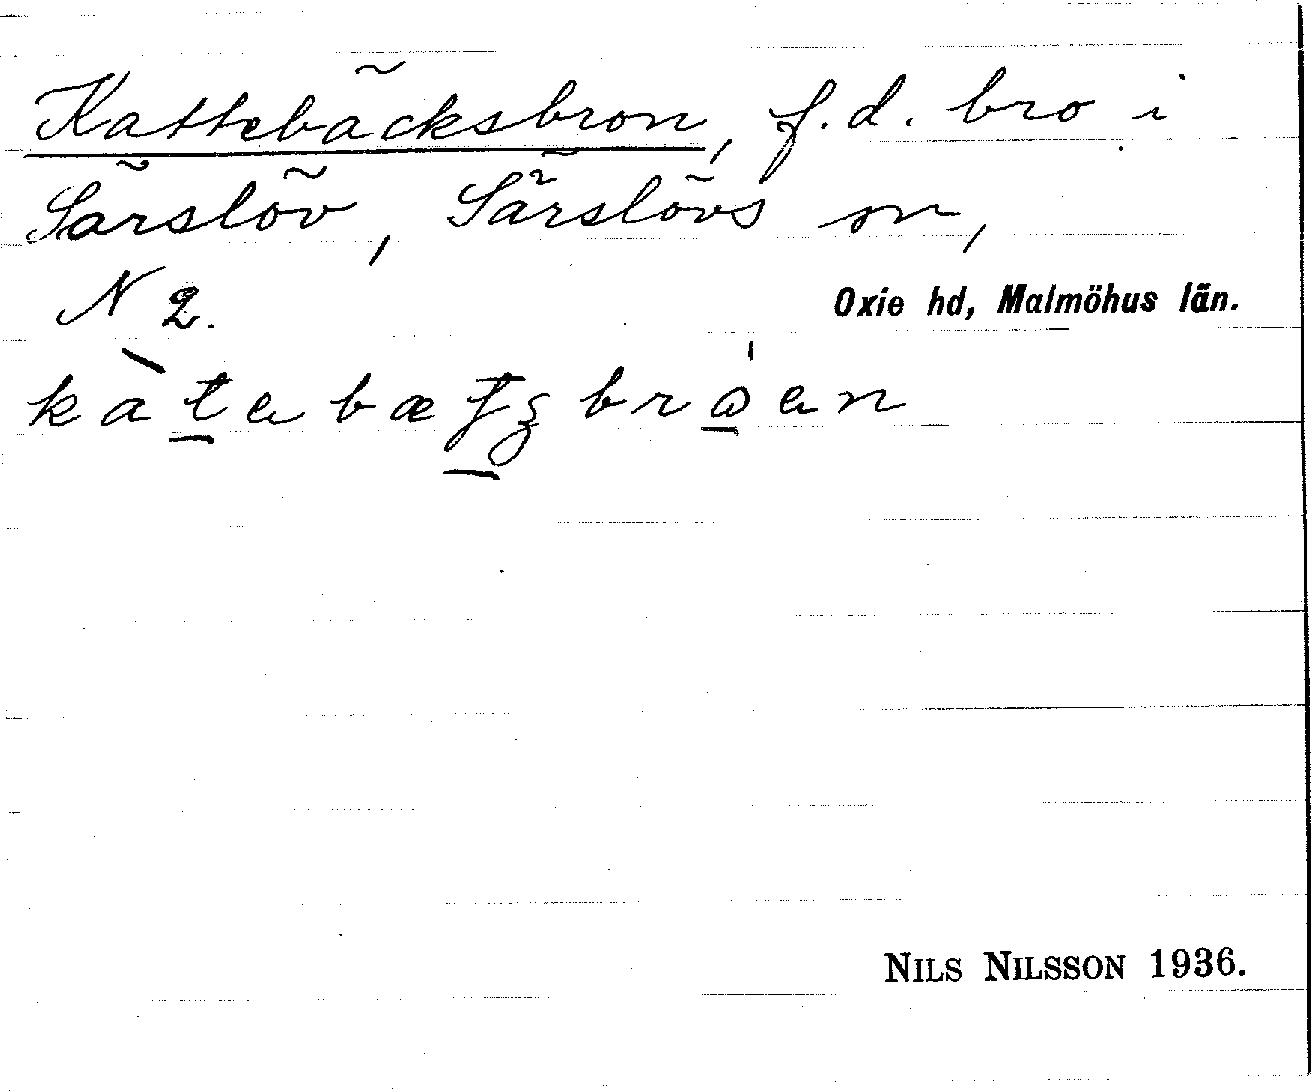 Kattebäcksbron, f.d. bro i
Särslöv, Särslövs sn,
N 2.
Oxie hd, Malmöhus län.
NILS NILSSON 1936.